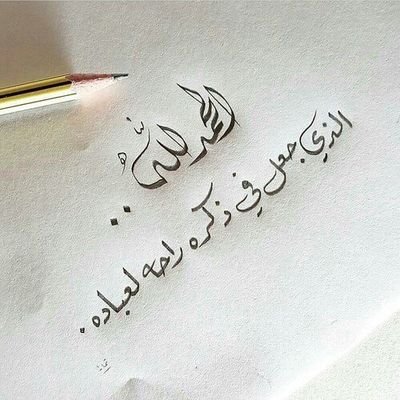 الحمد لله ..
الذي جعل في ذكره راحه لعباده .